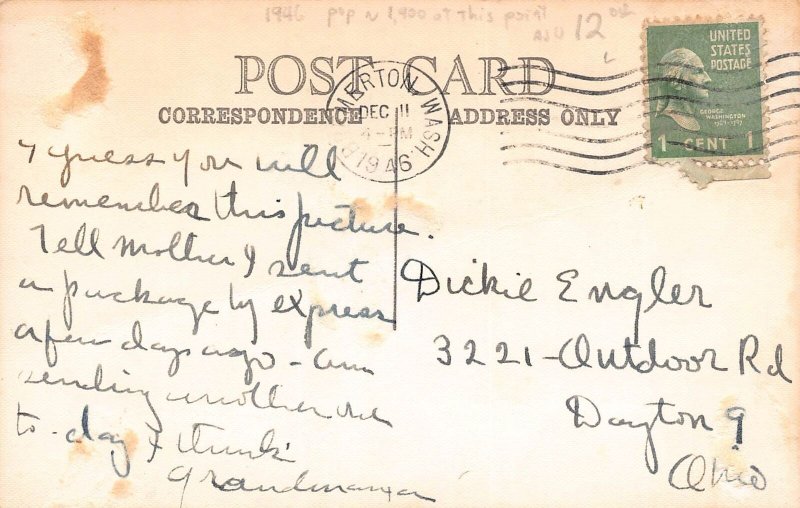 1946 pop ~ 1,900 at this point
12
UNITED
STATES
POSTAGE
GEORGE
WASHINGTON
1 CENT 1
POST CARD
CORRESPONDENCE ADDRESS ONLY
MERTON, WASH.
DEC 11
4-PM
1946
I guess you will
remember this picture.
Tell Mother I sent
a package by express
a few days ago - am
sending another one
to-day I think
Grandmama
Dickie Engler
3221-Outdoor Rd
Dayton 9
Ohio